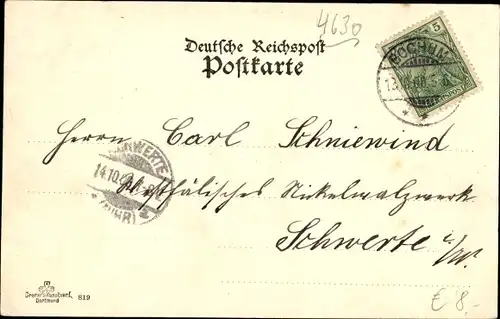 4630
Deutsche Reichspost
Postkarte
5
BOCHUM
Herrn Carl Schniewind
SCHWERTE
14.10.
(RUHR)
Westfälisches Nickelwalzwerk
Schwerte i/W.
Dortmund
819
€ 8,-